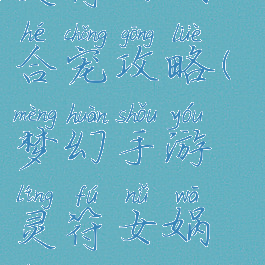 hé chǒng gōng lüè
合宠攻略(
mèng huàn shǒu yóu
梦幻手游
líng fú nǚ wā
灵符女娲